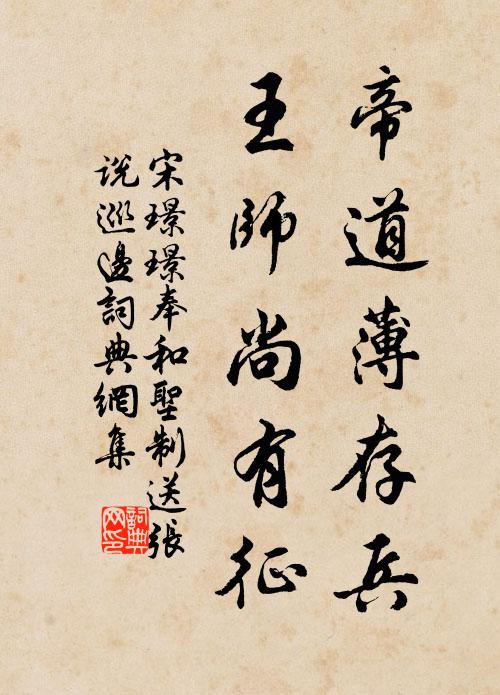 帝道薄存兵
王師尚有征
宋璟璟奉和聖制送張
說巡邊詞典網集
詞典
网印